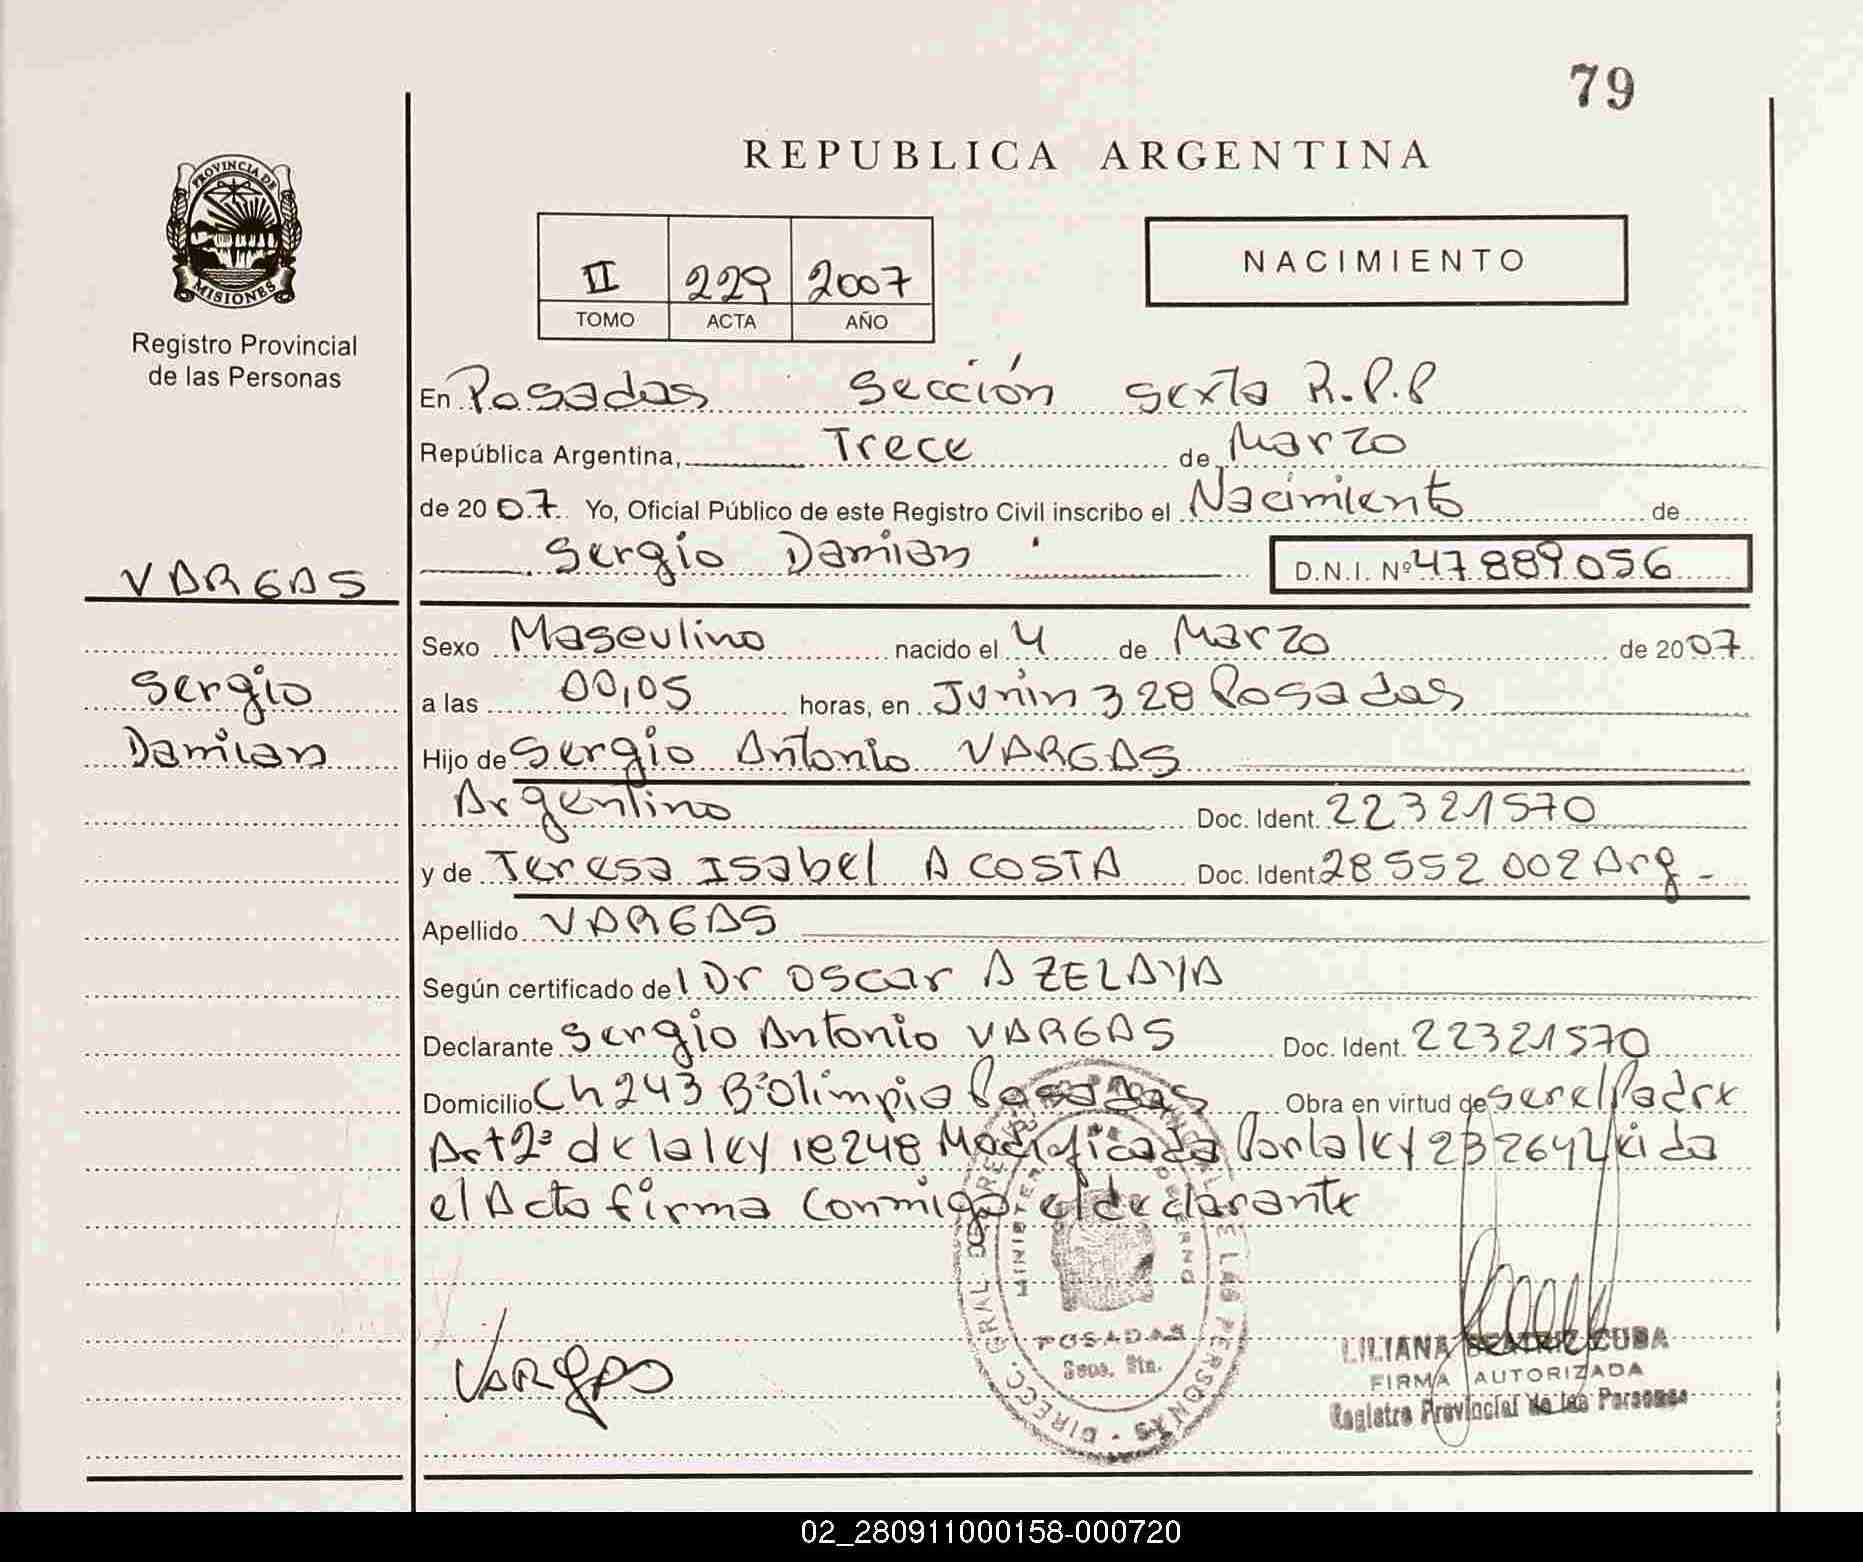 79
REPUBLICA ARGENTINA
PROVINCIA DE
MISIONES
Registro Provincial
de las Personas
II 229 2007
TOMO ACTA AÑO
NACIMIENTO
En Posadas Sección Sexta R.P.P
República Argentina, Trece de Marzo
de 2007 Yo, Oficial Público de este Registro Civil inscribo el Nacimiento de
Sergio Damian D.N.I. Nº 47889056
VARGAS
Sergio
Damian
Sexo Masculino nacido el 4 de Marzo de 2007
a las 00,05 horas, en Junin 328 Posadas
Hijo de Sergio Antonio VARGAS
Argentino Doc. Ident. 22321570
y de Teresa Isabel ACOSTA Doc. Ident. 28552002 Arg -
Apellido VARGAS
Según certificado del Dr Oscar A ZELAYA
Declarante Sergio Antonio VARGAS Doc. Ident. 22321570
Domicilio Ch 243 Bº Olimpio Posadas Obra en virtud de ser el Padre
Art 2º de la ley 18248 Modificada Por la ley 23264 Leida
el Acto firma Conmigo el declarante
Vargas
POSADAS
LILIANA BEATRIZ CUBA
FIRMA AUTORIZADA
Registro Provincial de las Personas
02_280911000158-000720